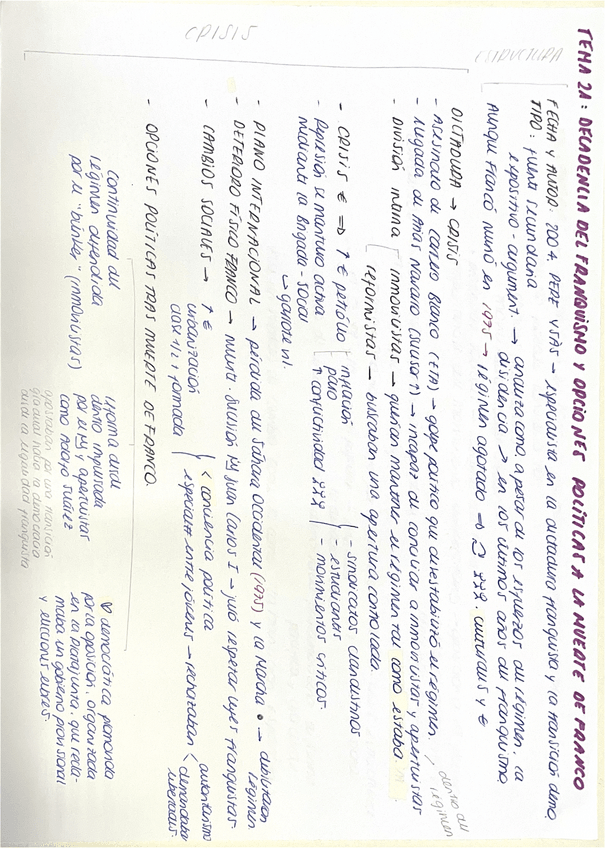 TEMA 2A: DECADENCIA DEL FRANQUISMO Y OPCIONES POLÍTICAS A LA MUERTE DE FRANCO
ESTRUCTURA
FECHA Y AUTOR: 2004. PERE YSÀS → especialista en la dictadura franquista y la transición democ.
TIPO: fuente secundaria
expositivo-argument. → analiza como, a pesar de los esfuerzos del régimen, la
disidencia → en los últimos años del franquismo
Aunque Franco murió en 1975 → régimen agotado ⇒
culturales y €
CRISIS
DICTADURA → CRISIS
- Asesinato de Carrero Blanco (ETA) → golpe político que desestabilizó el régimen.
- Llegada de Arias Navarro (sucesor) → incapaz de conciliar a inmovilistas y aperturistas
dentro del régimen
- División interna
inmovilistas → querían mantener el régimen tal como estaba
reformistas → buscaban una apertura controlada.
- CRISIS € ⇒ ↑ € petróleo
inflación
paro
↑ conflictividad
- sindicatos clandestinos
- estudiantes
- movimientos críticos
- Represión se mantuvo activa
mediante la Brigada-Social
→ garrote vil.
- PLANO INTERNACIONAL → pérdida del Sáhara Occidental (1975) y la Marcha → debilitaron régimen
- DETERIORO FÍSICO FRANCO → muerte. Sucesión Rey Juan Carlos I → juró respetar leyes franquistas.
- CAMBIOS SOCIALES →
↑ €
urbanización
clase 1/2 y formada
conciencia política
especialm. entre jóvenes → rechazaban
autoritarismo
demandaban
libertades.
- OPCIONES POLÍTICAS TRAS MUERTE DE FRANCO
Continuidad del
régimen defendida
por el "búnker" (inmovilistas)
reforma desde
dentro impulsada
por el Rey y aperturistas
como Adolfo Suárez
apostaban por una transición
gradual hacia la democracia
desde la legalidad franquista
democrática planteada
por la oposición, organizada
en la Platajunta, que recla-
maba un gobierno provisional
y elecciones libres.